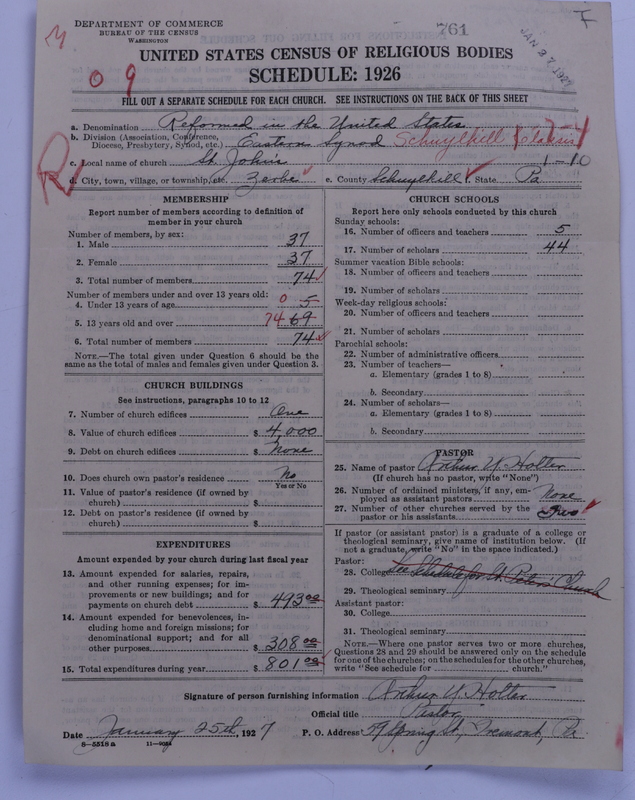 DEPARTMENT OF COMMERCE
BUREAU OF THE CENSUS
WASHINGTON
761
JAN 27 1927
0 9
UNITED STATES CENSUS OF RELIGIOUS BODIES
SCHEDULE: 1926
FILL OUT A SEPARATE SCHEDULE FOR EACH CHURCH. SEE INSTRUCTIONS ON THE BACK OF THIS SHEET
a. Denomination Reformed in the United States
b. Division (Association, Conference, Diocese, Presbytery, Synod, etc.) Eastern Synod Schuylkill Classis 7-4
c. Local name of church St. John's 1-10
d. City, town, village, or township, etc. Zerbe e. County Schuylkill f. State Pa
MEMBERSHIP
Report number of members according to definition of
member in your church
Number of members, by sex:
1. Male 37
2. Female 37
3. Total number of members 74
Number of members under and over 13 years old:
4. Under 13 years of age 0 5
5. 13 years old and over 74 69
6. Total number of members 74
NOTE.—The total given under Question 6 should be
same as the total of males and females given under Question 3.
CHURCH BUILDINGS
See instructions, paragraphs 10 to 12
7. Number of church edifices One
8. Value of church edifices $ 4,000
9. Debt on church edifices $ None
10. Does church own pastor's residence No
Yes or No
11. Value of pastor's residence (if owned by
church) $
12. Debt on pastor's residence (if owned by
church) $
EXPENDITURES
Amount expended by your church during last fiscal year
13. Amount expended for salaries, repairs,
and other running expenses; for im-
provements or new buildings; and for
payments on church debt $ 493 00
14. Amount expended for benevolences, in-
cluding home and foreign missions; for
denominational support; and for all
other purposes $ 308 00
15. Total expenditures during year $ 801 00
CHURCH SCHOOLS
Report here only schools conducted by this church
Sunday schools:
16. Number of officers and teachers 5
17. Number of scholars 44
Summer vacation Bible schools:
18. Number of officers and teachers
19. Number of scholars
Week-day religious schools:
20. Number of officers and teachers
21. Number of scholars
Parochial schools:
22. Number of administrative officers
23. Number of teachers—
a. Elementary (grades 1 to 8)
b. Secondary
24. Number of scholars—
a. Elementary (grades 1 to 8)
b. Secondary
PASTOR
25. Name of pastor Arthur Y. Holter
(If church has no pastor, write "None")
26. Number of ordained ministers, if any, em-
ployed as assistant pastors None
27. Number of other churches served by the
pastor or his assistants Two
If pastor (or assistant pastor) is a graduate of a college or
theological seminary, give name of institution below. (If
not a graduate, write "No" in the space indicated.)
Pastor:
28. College See Schedule for St. Peters Church
29. Theological seminary
Assistant pastor:
30. College
31. Theological seminary
NOTE.—Where one pastor serves two or more churches,
Questions 28 and 29 should be answered only on the schedule
for one of the churches; on the schedules for the other churches,
write "See schedule for church."
Signature of person furnishing information Arthur Y. Holter
Official title Pastor
Date January 25th, 1927 P. O. Address 59 Spring St., Tremont, Pa.
8—5518a 11—9034